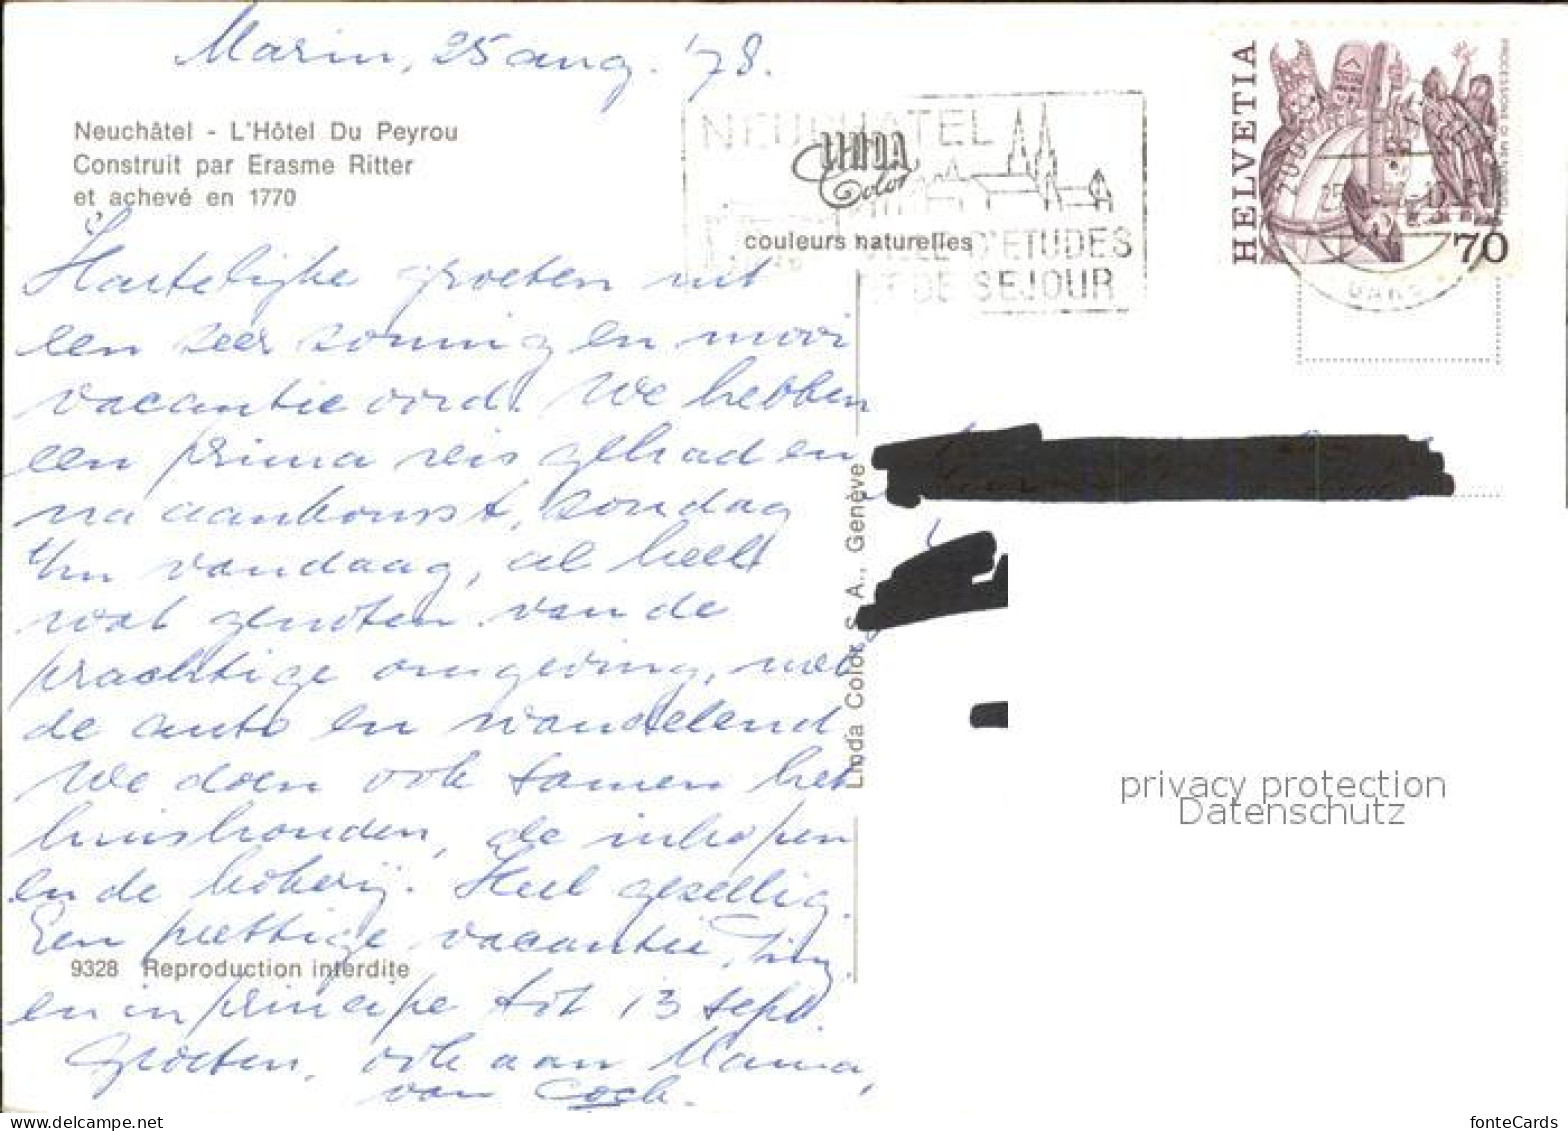 Marin, 25 aug. '78.
Neuchâtel - L'Hôtel Du Peyrou
Construit par Erasme Ritter
et achevé en 1770
Hartelijke groeten uit
een zeer zonnig en mooi
vacantieoord. We hebben
een prima reis gehad en
na aankomst, zondag
t/m vandaag, al heel
wat genoten van de
prachtige omgeving, met
de auto en wandelend
We doen ook samen het
huishouden, de inkopen
en de kokerij. Heel gezellig.
Een prettige vacantie,
en in principe tot 13 sept.
Groeten, ook aan Mama,
van
9328 Reproduction interdite
NEUCHATEL
LINDA
Color
couleurs naturelles
VILLE D'ETUDES
ET DE SEJOUR
Linda Color S. A., Genève
HELVETIA
70
privacy protection
Datenschutz
fonteCards